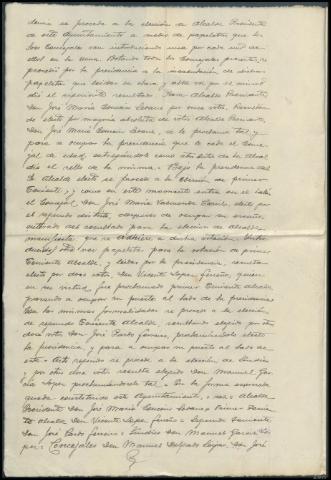 se procede a la elección de Alcalde Presidente
de este Ayuntamiento a medio de papeletas que los
Sres Concejales van introduciendo una por cada uno de
ellos en la urna. Votando todos los Concejales presentes, se
procedió por la presidencia a la de dichas
papeletas que leidas en clara y alta voz por el mismo
dió el siguiente resultado: Para Alcalde Presidente
Don José María por once votos,
do electo por mayoría absoluta de votos Alcalde Presidente
Don José María se le proclama tal y
para a ocupar la presidencia que le cede el Conce-
jal de edad, entregándole como atributo de la Alcal-
día el sello de la misma. Bajo la presidencia del
Sr Alcalde electo se procede a la elección de primer
Teniente y como en este momento entra en el salón
el Concejal Don José María electo por
el segundo distrito, después de ocupar su asiento,
enterado del resultado para la elección de Alcalde
manifiesta que se adhiere a dicha votación,
papeletas para la votación de primer
Teniente Alcalde, y leidas por la presidencia, resulta
electo por doce votos Don Vicente Lopez quien
en su virtud fue proclamado primer Teniente Alcalde
pasando a ocupar su puesto al lado de la presidencia
Con las mismas formalidades se procede a la elección
de segundo Teniente Alcalde, resultando elegido por
doce votos Don José Pardo proclamándole electo
la presidencia y pasa a ocupar su puesto al lado de
este. Acto seguido se procede a la elección de Síndico
y por otros doce votos resulta elegido Don Manuel Gar-
cia Lopez proclamándosele tal. En la forma expresada
queda constituido este Ayuntamiento, sea: Alcalde
Presidente Don José María Primer Tenien-
te Alcalde Don Vicente Lopez Segundo Teniente
Don José Pardo Síndico Don Manuel Garcia
Concejales Don Manuel Delgado Don José